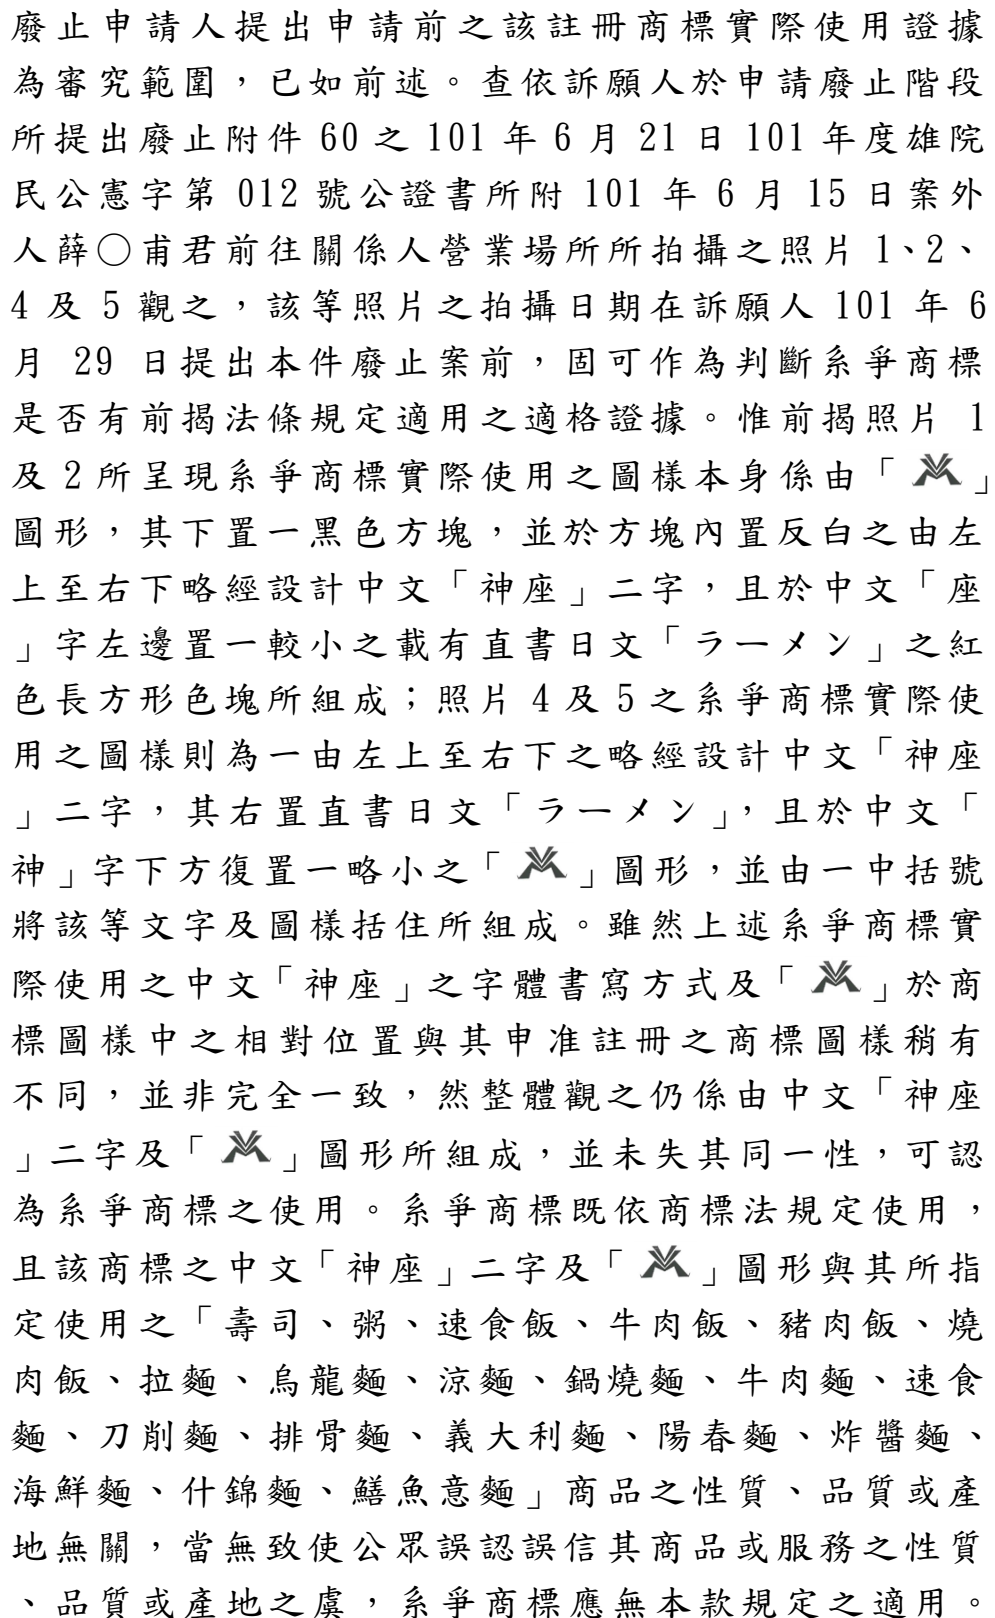 廢止申請人提出申請前之該註冊商標實際使用證據
為審究範圍，已如前述。查依訴願人於申請廢止階段
所提出廢止附件 60 之 101 年 6 月 21 日 101 年度雄院
民公憲字第 012 號公證書所附 101 年 6 月 15 日案外
人薛○甫君前往關係人營業場所所拍攝之照片 1、2、
4 及 5 觀之，該等照片之拍攝日期在訴願人 101 年 6
月 29 日提出本件廢止案前，固可作為判斷系爭商標
是否有前揭法條規定適用之適格證據。惟前揭照片 1
及 2 所呈現系爭商標實際使用之圖樣本身係由「 」
圖形，其下置一黑色方塊，並於方塊內置反白之由左
上至右下略經設計中文「神座」二字，且於中文「座
」字左邊置一較小之載有直書日文「ラーメン」之紅
色長方形色塊所組成；照片 4 及 5 之系爭商標實際使
用之圖樣則為一由左上至右下之略經設計中文「神座
」二字，其右置直書日文「ラーメン」，且於中文「
神」字下方復置一略小之「 」圖形，並由一中括號
將該等文字及圖樣括住所組成。雖然上述系爭商標實
際使用之中文「神座」之字體書寫方式及「 」於商
標圖樣中之相對位置與其申准註冊之商標圖樣稍有
不同，並非完全一致，然整體觀之仍係由中文「神座
」二字及「 」圖形所組成，並未失其同一性，可認
為系爭商標之使用。系爭商標既依商標法規定使用，
且該商標之中文「神座」二字及「 」圖形與其所指
定使用之「壽司、粥、速食飯、牛肉飯、豬肉飯、燒
肉飯、拉麵、烏龍麵、涼麵、鍋燒麵、牛肉麵、速食
麵、刀削麵、排骨麵、義大利麵、陽春麵、炸醬麵、
海鮮麵、什錦麵、鱔魚意麵」商品之性質、品質或產
地無關，當無致使公眾誤認誤信其商品或服務之性質
、品質或產地之虞，系爭商標應無本款規定之適用。